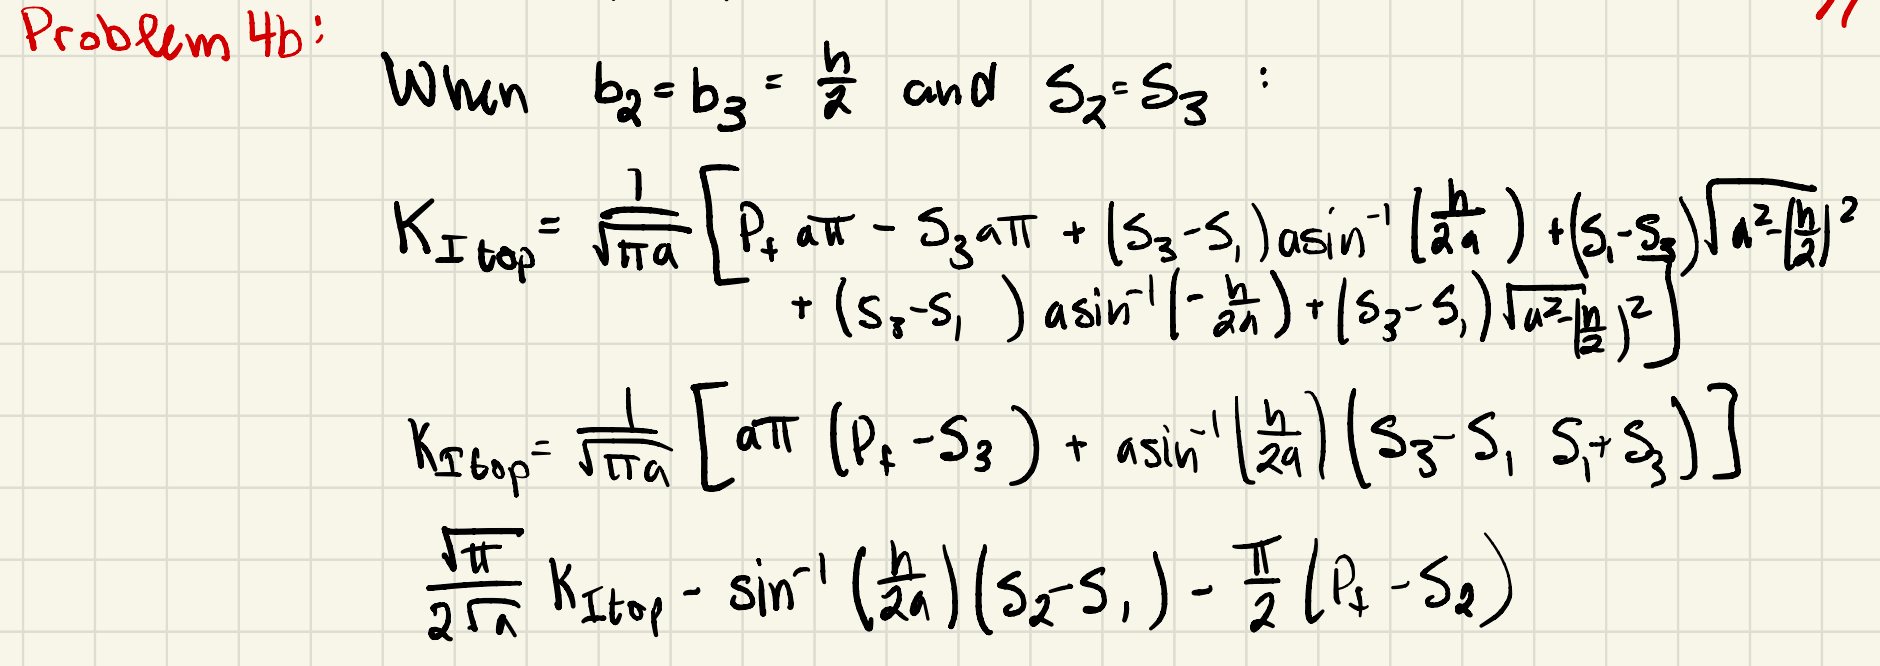 Problem 4b:
When b₂ = b₃ = h/2 and S₂ = S₃ :
K_I top = 1/√(πa) [ P_f aπ - S₃ aπ + (S₃ - S₁) a sin⁻¹ (h/2a) + (S₁ - S₃) √(a² - (h/2)²)
+ (S₃ - S₁ ) a sin⁻¹ (- h/2a) + (S₃ - S₁) √(a² - (h/2)²) ]
K_I top = 1/√(πa) [ aπ (P_f - S₃) + a sin⁻¹ (h/2a) (S₃ - S₁ S₁ + S₃) ]
√π/2√a K_I top - sin⁻¹ (h/2a) (S₂ - S₁) - π/2 (P_f - S₂)